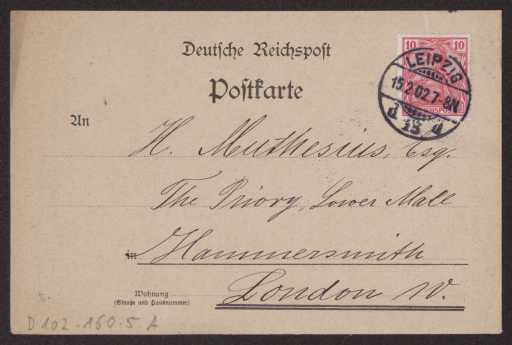 Deutsche Reichspost
Postkarte
10 10
LEIPZIG
15.2.02.7-8N
d 13 d
An
H. Muthesius, Esq.
The Priory, Lower Mall
in Hammersmith
Wohnung
(Straße und Hausnummer)
London W.
D102-150-5 A